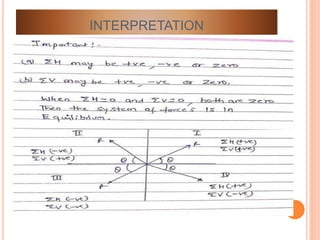 INTERPRETATION
Important :-
(a) ΣH may be +ve, -ve or zero
(b) ΣV may be +ve, -ve or Zero.
When ΣH=0 and ΣV=0, both are zero
Then the system of forces is in
Equilibrium.
II I
R R ΣH(+ve)
ΣH(-ve) ΣV(+ve)
ΣV(+ve) θ θ
θ θ
III IV
R ΣH(+ve)
ΣH(-ve) ΣV(-ve)
ΣV(-ve)